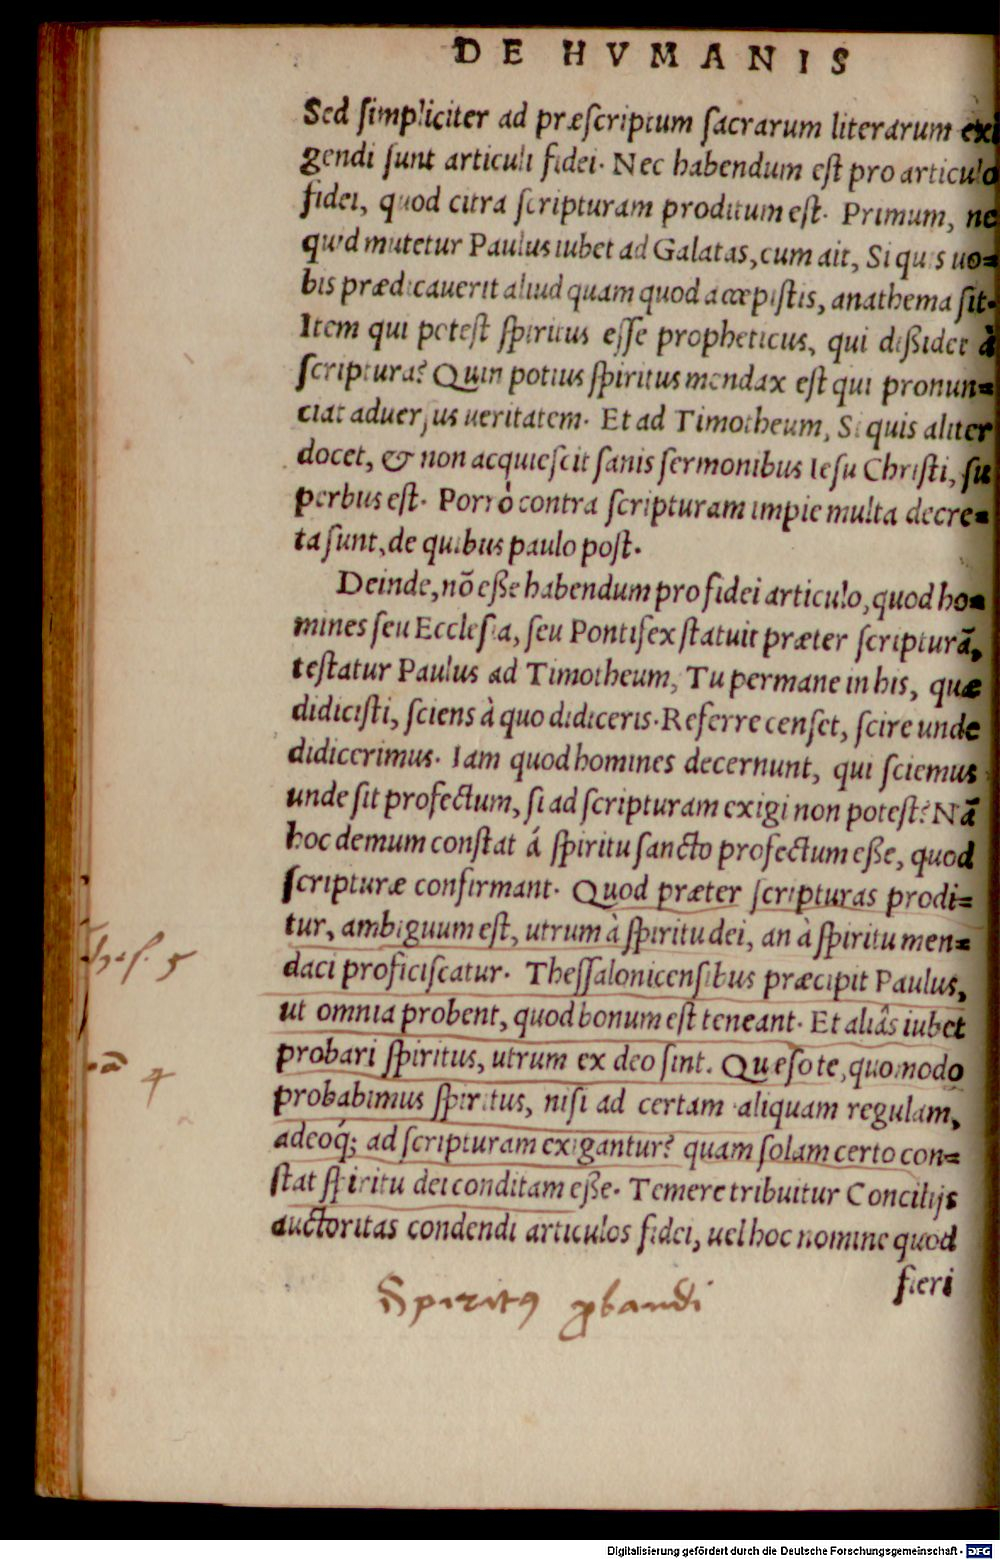 DE HVMANIS
Sed simpliciter ad præscriptum sacrarum literarum exi
gendi sunt articuli fidei. Nec habendum est pro articulo
fidei, quod citra scripturam proditum est. Primum, ne
quid mutetur Paulus iubet ad Galatas, cum ait, Si quis uo=
bis prædicauerit aliud quam quod accepistis, anathema sit.
Item qui potest spiritus esse propheticus, qui dißidet à
scriptura? Quin potius spiritus mendax est qui pronun=
ciat aduersus ueritatem. Et ad Timotheum, Si quis aliter
docet, & non acquiescit sanis sermonibus Iesu Christi, su
perbus est. Porrò contra scripturam impie multa decre=
ta sunt, de quibus paulo post.
Deinde, nõ eße habendum pro fidei articulo, quod ho=
mines seu Ecclesia, seu Pontifex statuit præter scripturã,
testatur Paulus ad Timotheum, Tu permane in his, quæ
didicisti, sciens à quo didiceris. Referre censet, scire unde
didicerimus. Iam quod homines decernunt, qui sciemus
unde sit profectum, si ad scripturam exigi non potest? Nã
hoc demum constat á spiritu sancto profectum eße, quod
scripturæ confirmant. Quod præter scripturas prodi=
tur, ambiguum est, utrum à spiritu dei, an à spiritu men=
daci proficiscatur. Thessalonicensibus præcipit Paulus,
ut omnia probent, quod bonum est teneant. Et aliâs iubet
probari spiritus, utrum ex deo sint. Quæso te, quomodo
probabimus spiritus, nisi ad certam aliquam regulam,
adeoq́; ad scripturam exigantur? quam solam certo con=
stat spiritu dei conditam eße. Temere tribuitur Concilijs
auctoritas condendi articulos fidei, uel hoc nomine quod
fieri
hes. 5
oã 4
Spiritꝰ ꝓbandi
Digitalisierung gefördert durch die Deutsche Forschungsgemeinschaft - DFG